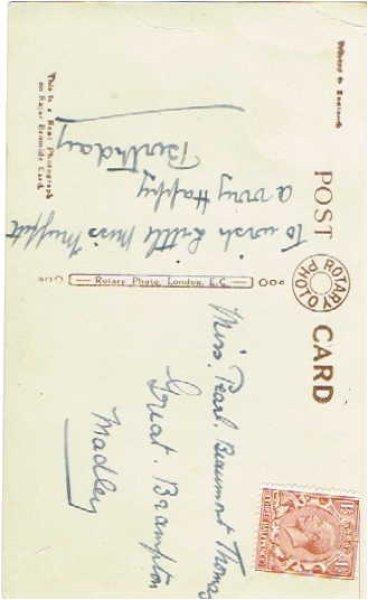 POST CARD
ROTARY PHOTO
This is a Real Photograph
on Rajar Bromide Card.
Rotary Photo, London, E.C.
To wish Little Miss Muffett
a very Happy
Birthday
Miss. Pearl. Beaumont Thomas
Great. Brampton
Madley